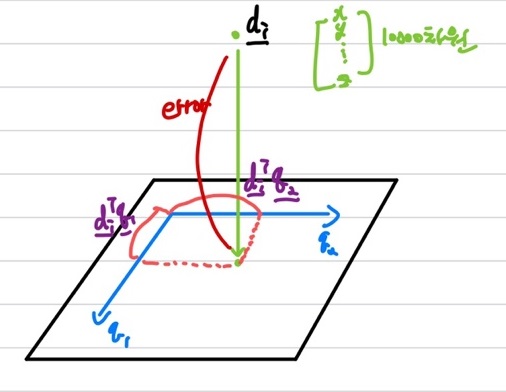 d_i
[x y ⋮ z] 10000차원
error
d_i^T q_2
d_i^T q_1
q_2
q_1